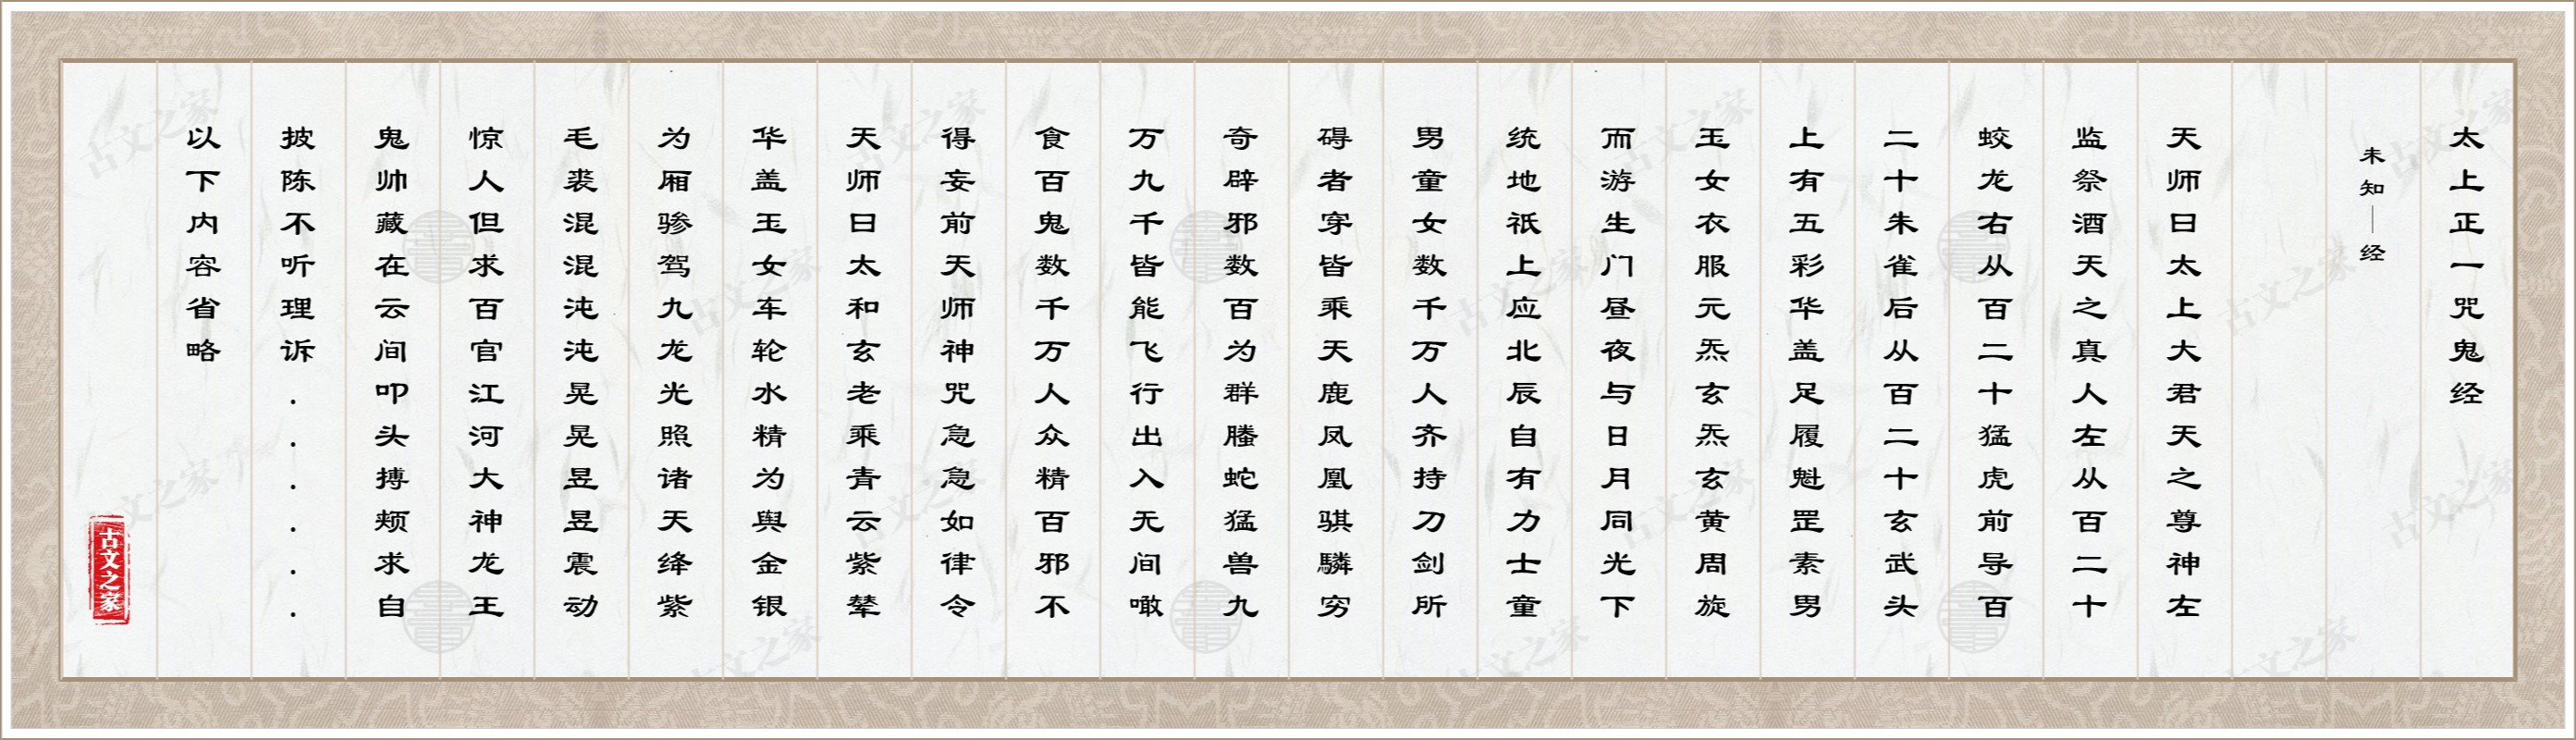 太上正一咒鬼经
未知｜经
天师曰太上大君天之尊神左
监祭酒天之真人左从百二十
蛟龙右从百二十猛虎前导百
二十朱雀后从百二十玄武头
上有五彩华盖足履魁罡素男
玉女衣服元炁玄炁玄黄周旋
而游生门昼夜与日月同光下
统地祇上应北辰自有力士童
男童女数千万人齐持刀剑所
碍者穿皆乘天鹿凤凰骐驎穷
奇辟邪数百为群螣蛇猛兽九
万九千皆能飞行出入无间噉
食百鬼数千万人众精百邪不
得妄前天师神咒急急如律令
天师曰太和玄老乘青云紫辇
华盖玉女车轮水精为舆金银
为厢骖驾九龙光照诸天绛紫
毛裘混混沌沌晃晃昱昱震动
惊人但求百官江河大神龙王
鬼帅藏在云间叩头搏颊求自
披陈不听理诉......
以下内容省略
古文之家